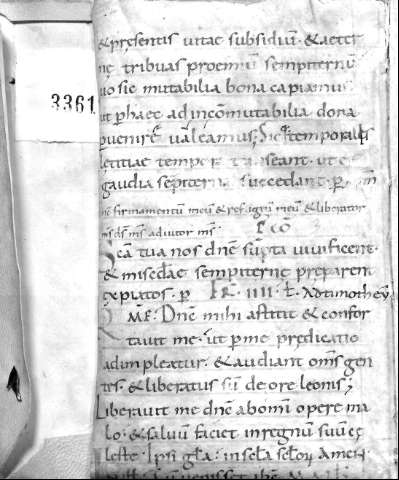 3361
& presentis uitae subsidiū · & aeter
nę tribuas premiū sempiternū
sic mutabilia bona capiamus
ut p haec ad incōmutabilia dona
puenire ualeamus; Sic temporalis
letitiae tempora transeant · ut
gaudia sēpiterna succedant · p
firmamentū meū & refugiū meū & liberator
ms ds ms adiutor ms · P CŌ
Scā tua nos dnē sūpta uiuificent ·
& misc̄dae sempiternę preparent
expiatos · p · FR · IIII · Ł · Ad timotheū,
M̄F · Dns mihi astitit & confor
tauit me · ut p me predicatio
adimpleatur · & audiant om̄s gen
tes · & liberatus sū de ore leonis;
Liberauit me dns ab omni opere ma
lo · & saluū faciet in regnū suū cę
leste · Ipsi glā · in secla seclorū Amen